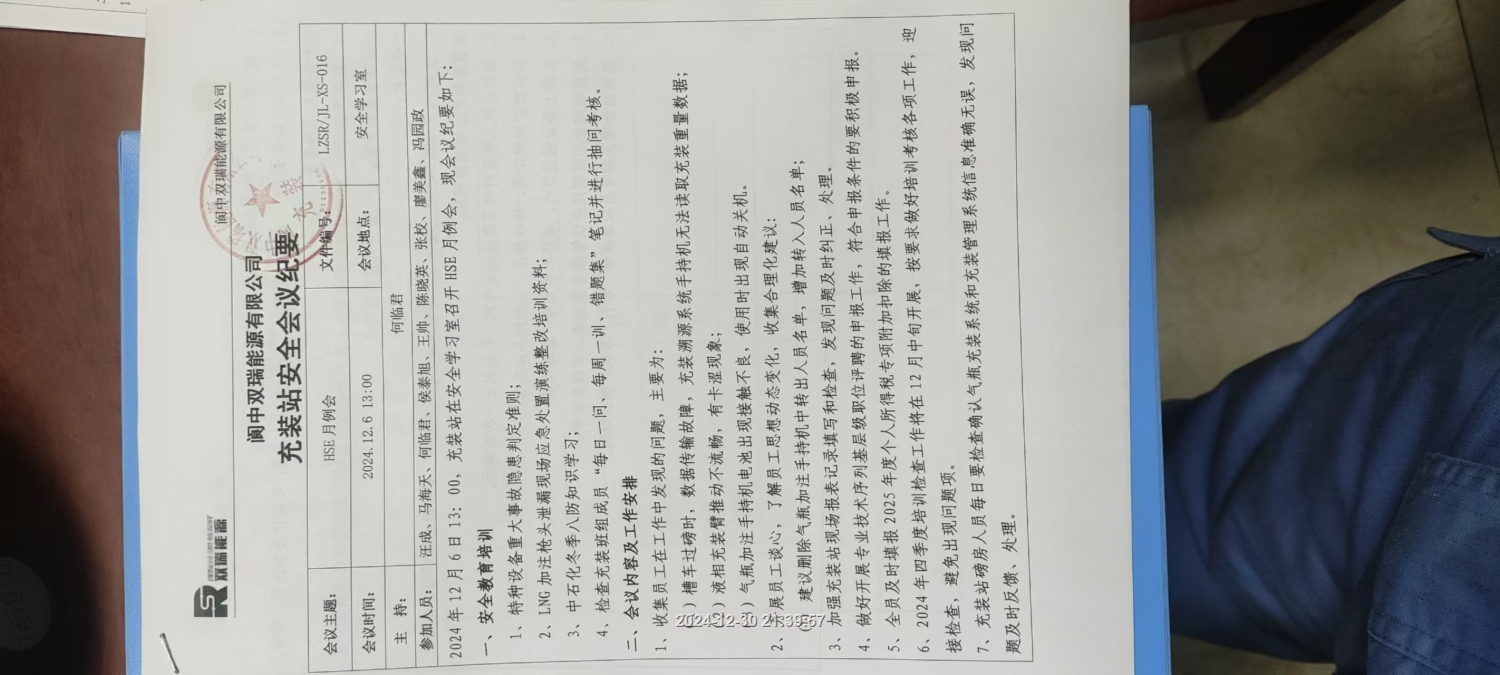 双瑞能源
阆中双瑞能源有限公司
阆中双瑞能源有限公司
充装站安全会议纪要
会议主题： HSE 月例会 文件编号： LZSR/JL-XS-016
会议时间： 2024.12.6 13:00 会议地点： 安全学习室
主 持： 何临君
参加人员： 汪成、马海天、何临君、侯秦旭、王帅、陈晓英、张校、廖美鑫、冯园政
2024 年 12 月 6 日 13：00，充装站在安全学习室召开 HSE 月例会，现会议纪要如下：
一、安全教育培训
1、特种设备重大事故隐患判定准则；
2、LNG 加注枪头泄漏现场应急处置演练整改培训资料；
3、中石化冬季八防知识学习；
4、检查充装班组成员“每日一问、每周一训、错题集”笔记并进行抽问考核。
二、会议内容及工作安排
1、收集员工在工作中发现的问题，主要为：
）槽车过磅时，数据传输故障，充装溯源系统手持机无法读取充装重量数据；
）液相充装臂推动不流畅，有卡涩现象；
）气瓶加注手持机电池出现接触不良，使用时出现自动关机。
2、开展员工谈心，了解员工思想动态变化，收集合理化建议：
建议删除气瓶加注手持机中转出人员名单，增加转入人员名单；
3、加强充装站现场报表记录填写和检查，发现问题及时纠正、处理。
4、做好开展专业技术序列基层级职位评聘的申报工作，符合申报条件的要积极申报。
5、全员及时填报 2025 年度个人所得税专项附加扣除的填报工作。
6、2024 年四季度培训检查工作将在 12 月中旬开展，按要求做好培训考核各项工作，迎
接检查，避免出现问题项。
7、充装站磅房人员每日要检查确认气瓶充装系统和充装管理系统信息准确无误，发现问
题及时反馈、处理。
2024-12-30 21:39:57